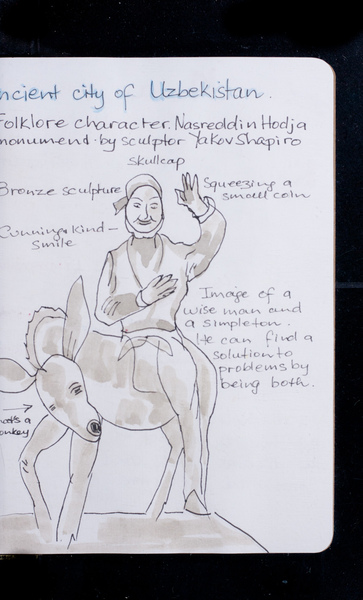 ncient city of Uzbekistan.
Folklore character. Nasreddin Hodja
monument by sculptor Yakov Shapiro
skullcap
Bronze sculpture
Squeezing a
small coin
Cunning & kind
smile
Image of a
wise man and
a simpleton.
He can find a
solution to
problems by
being both.
that's a
onkey